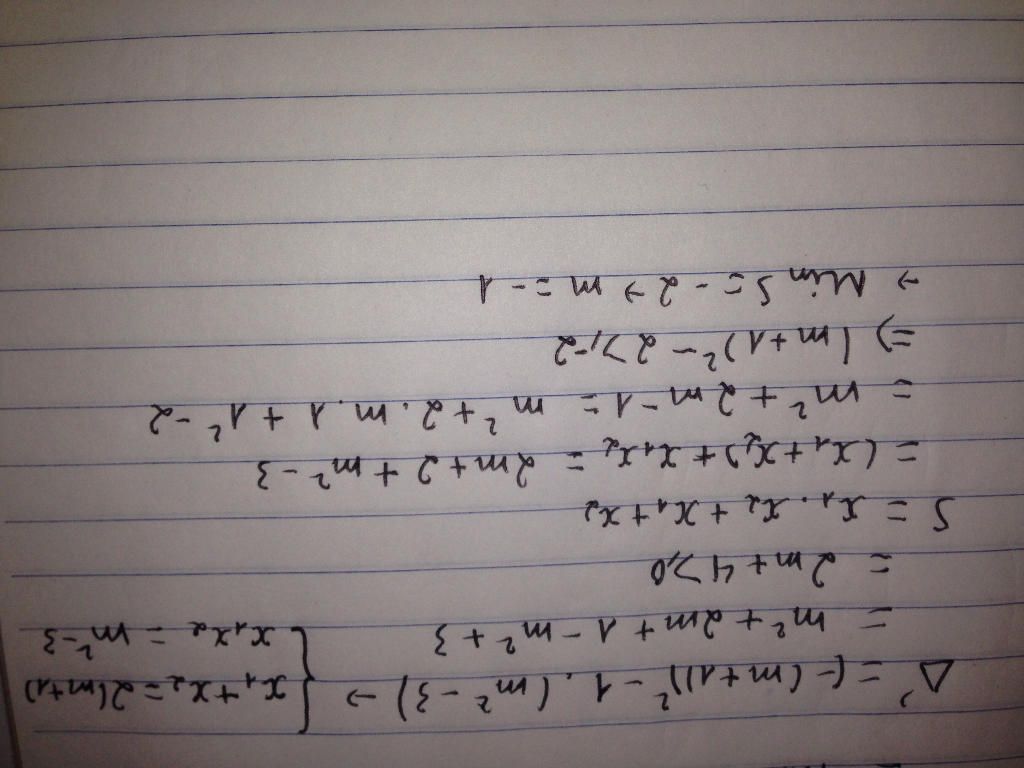 Δ' = (-(m+1))² - 1.(m² - 3) → { x₁ + x₂ = 2(m+1)
= m² + 2m + 1 - m² + 3 { x₁x₂ = m² - 3
= 2m + 4 ≥ 0
S = x₁.x₂ + x₁ + x₂
= (x₁ + x₂) + x₁x₂ = 2m + 2 + m² - 3
= m² + 2m - 1 = m² + 2.m.1 + 1² - 2
⇒ (m+1)² - 2 ≥ -2
→ Min S = -2 → m = -1